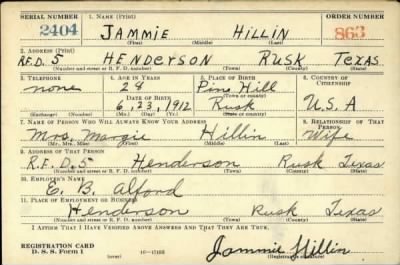 SERIAL NUMBER 1. NAME (Print) ORDER NUMBER
2404 JAMMIE HILLIN 863
(First) (Middle) (Last)
2. ADDRESS (Print)
R.F.D. 5 HENDERSON RUSK TEXAS
(Number and street or R. F. D. number) (Town) (County) (State)
3. TELEPHONE 4. AGE IN YEARS 5. PLACE OF BIRTH 6. COUNTRY OF CITIZENSHIP
none 28 Pine Hill
DATE OF BIRTH (Town or county)
6, 23, 1912 Rusk U.S.A
(Exchange) (Number) (Mo.) (Day) (Yr.) (State or country)
7. NAME OF PERSON WHO WILL ALWAYS KNOW YOUR ADDRESS 8. RELATIONSHIP OF THAT PERSON
Mrs. Margie Hillin Wife
(Mr., Mrs., Miss) (First) (Middle) (Last)
9. ADDRESS OF THAT PERSON
R.F.D. 5 Henderson Rusk Texas
(Number and street or R. F. D. number) (Town) (County) (State)
10. EMPLOYER'S NAME
E. B. Alford
11. PLACE OF EMPLOYMENT OR BUSINESS
Henderson Rusk Texas
(Number and street or R. F. D. number) (Town) (County) (State)
I AFFIRM THAT I HAVE VERIFIED ABOVE ANSWERS AND THAT THEY ARE TRUE.
REGISTRATION CARD
D. S. S. FORM 1 Jammie Hillin
(Registrant's signature)